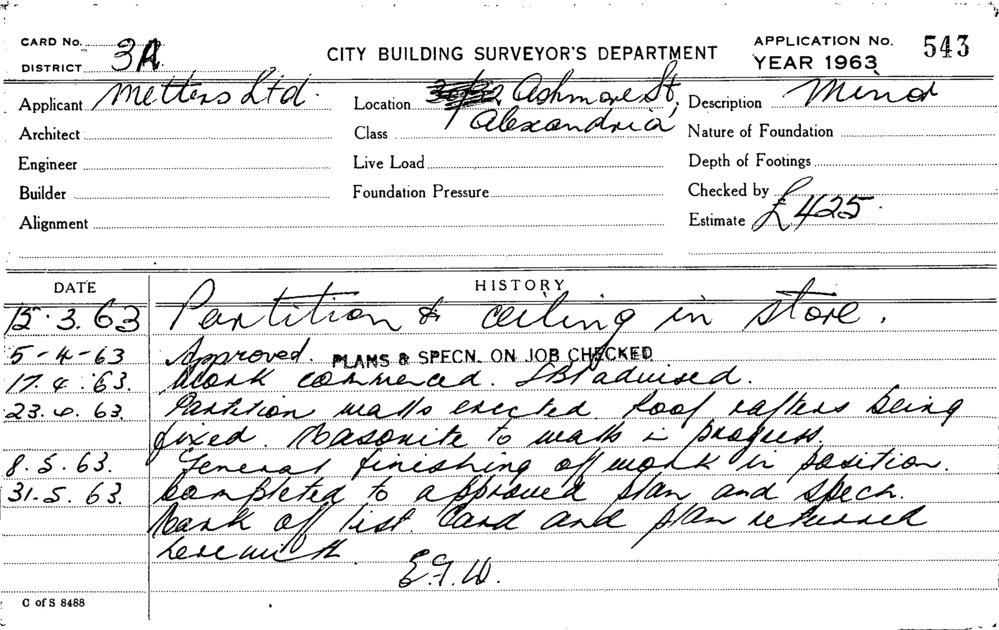 CARD No.
DISTRICT 3A
CITY BUILDING SURVEYOR'S DEPARTMENT
APPLICATION No. 543
YEAR 1963
Applicant Metters Ltd.
Location Ashmore St,
Alexandria
Description Minor
Architect
Class
Nature of Foundation
Engineer
Live Load
Depth of Footings
Builder
Foundation Pressure
Checked by
Alignment
Estimate £425.
DATE HISTORY
15.3.63 Partition & ceiling in store.
5-4-63 Approved. PLANS & SPECN. ON JOB CHECKED
17.4.63. Work commenced. advised.
23.4.63. Partition walls erected Roof rafters being
fixed. Masonite to walls in progress.
8.5.63. General finishing off work in position.
31.5.63. Completed to approved plan and specn.
Mark off list. Card and plan returned
herewith
E.G.W.
C of S 8488